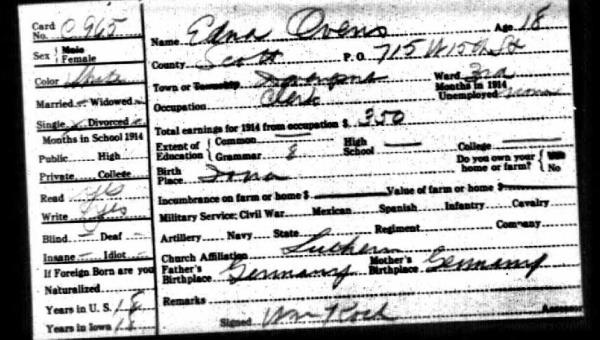 Card No. C 965
Sex Male Female
Color White
Married Widowed
Single Divorced
Months in School 1914
Public High
Private College
Read yes
Write yes
Blind Deaf
Insane Idiot
If Foreign Born are you
Naturalized
Years in U.S. 18
Years in Iowa 18
Name Edna Ovens Age 18
County Scott P. O. 715 W 15th St
Town or Township Davenport Ward 3rd
Occupation Clerk Months in 1914 Unemployed None
Total earnings for 1914 from occupation $ 350
Extent of Education Common High School College
Grammar 8 Do you own your home or farm? No
Birth Place Iowa
Incumbrance on farm or home $ Value of farm or home $
Military Service: Civil War Mexican Spanish Infantry Cavalry
Artillery Navy State Regiment Company
Church Affiliation Luthern
Father's Birthplace Germany Mother's Birthplace Germany
Remarks
Signed Wm Koch